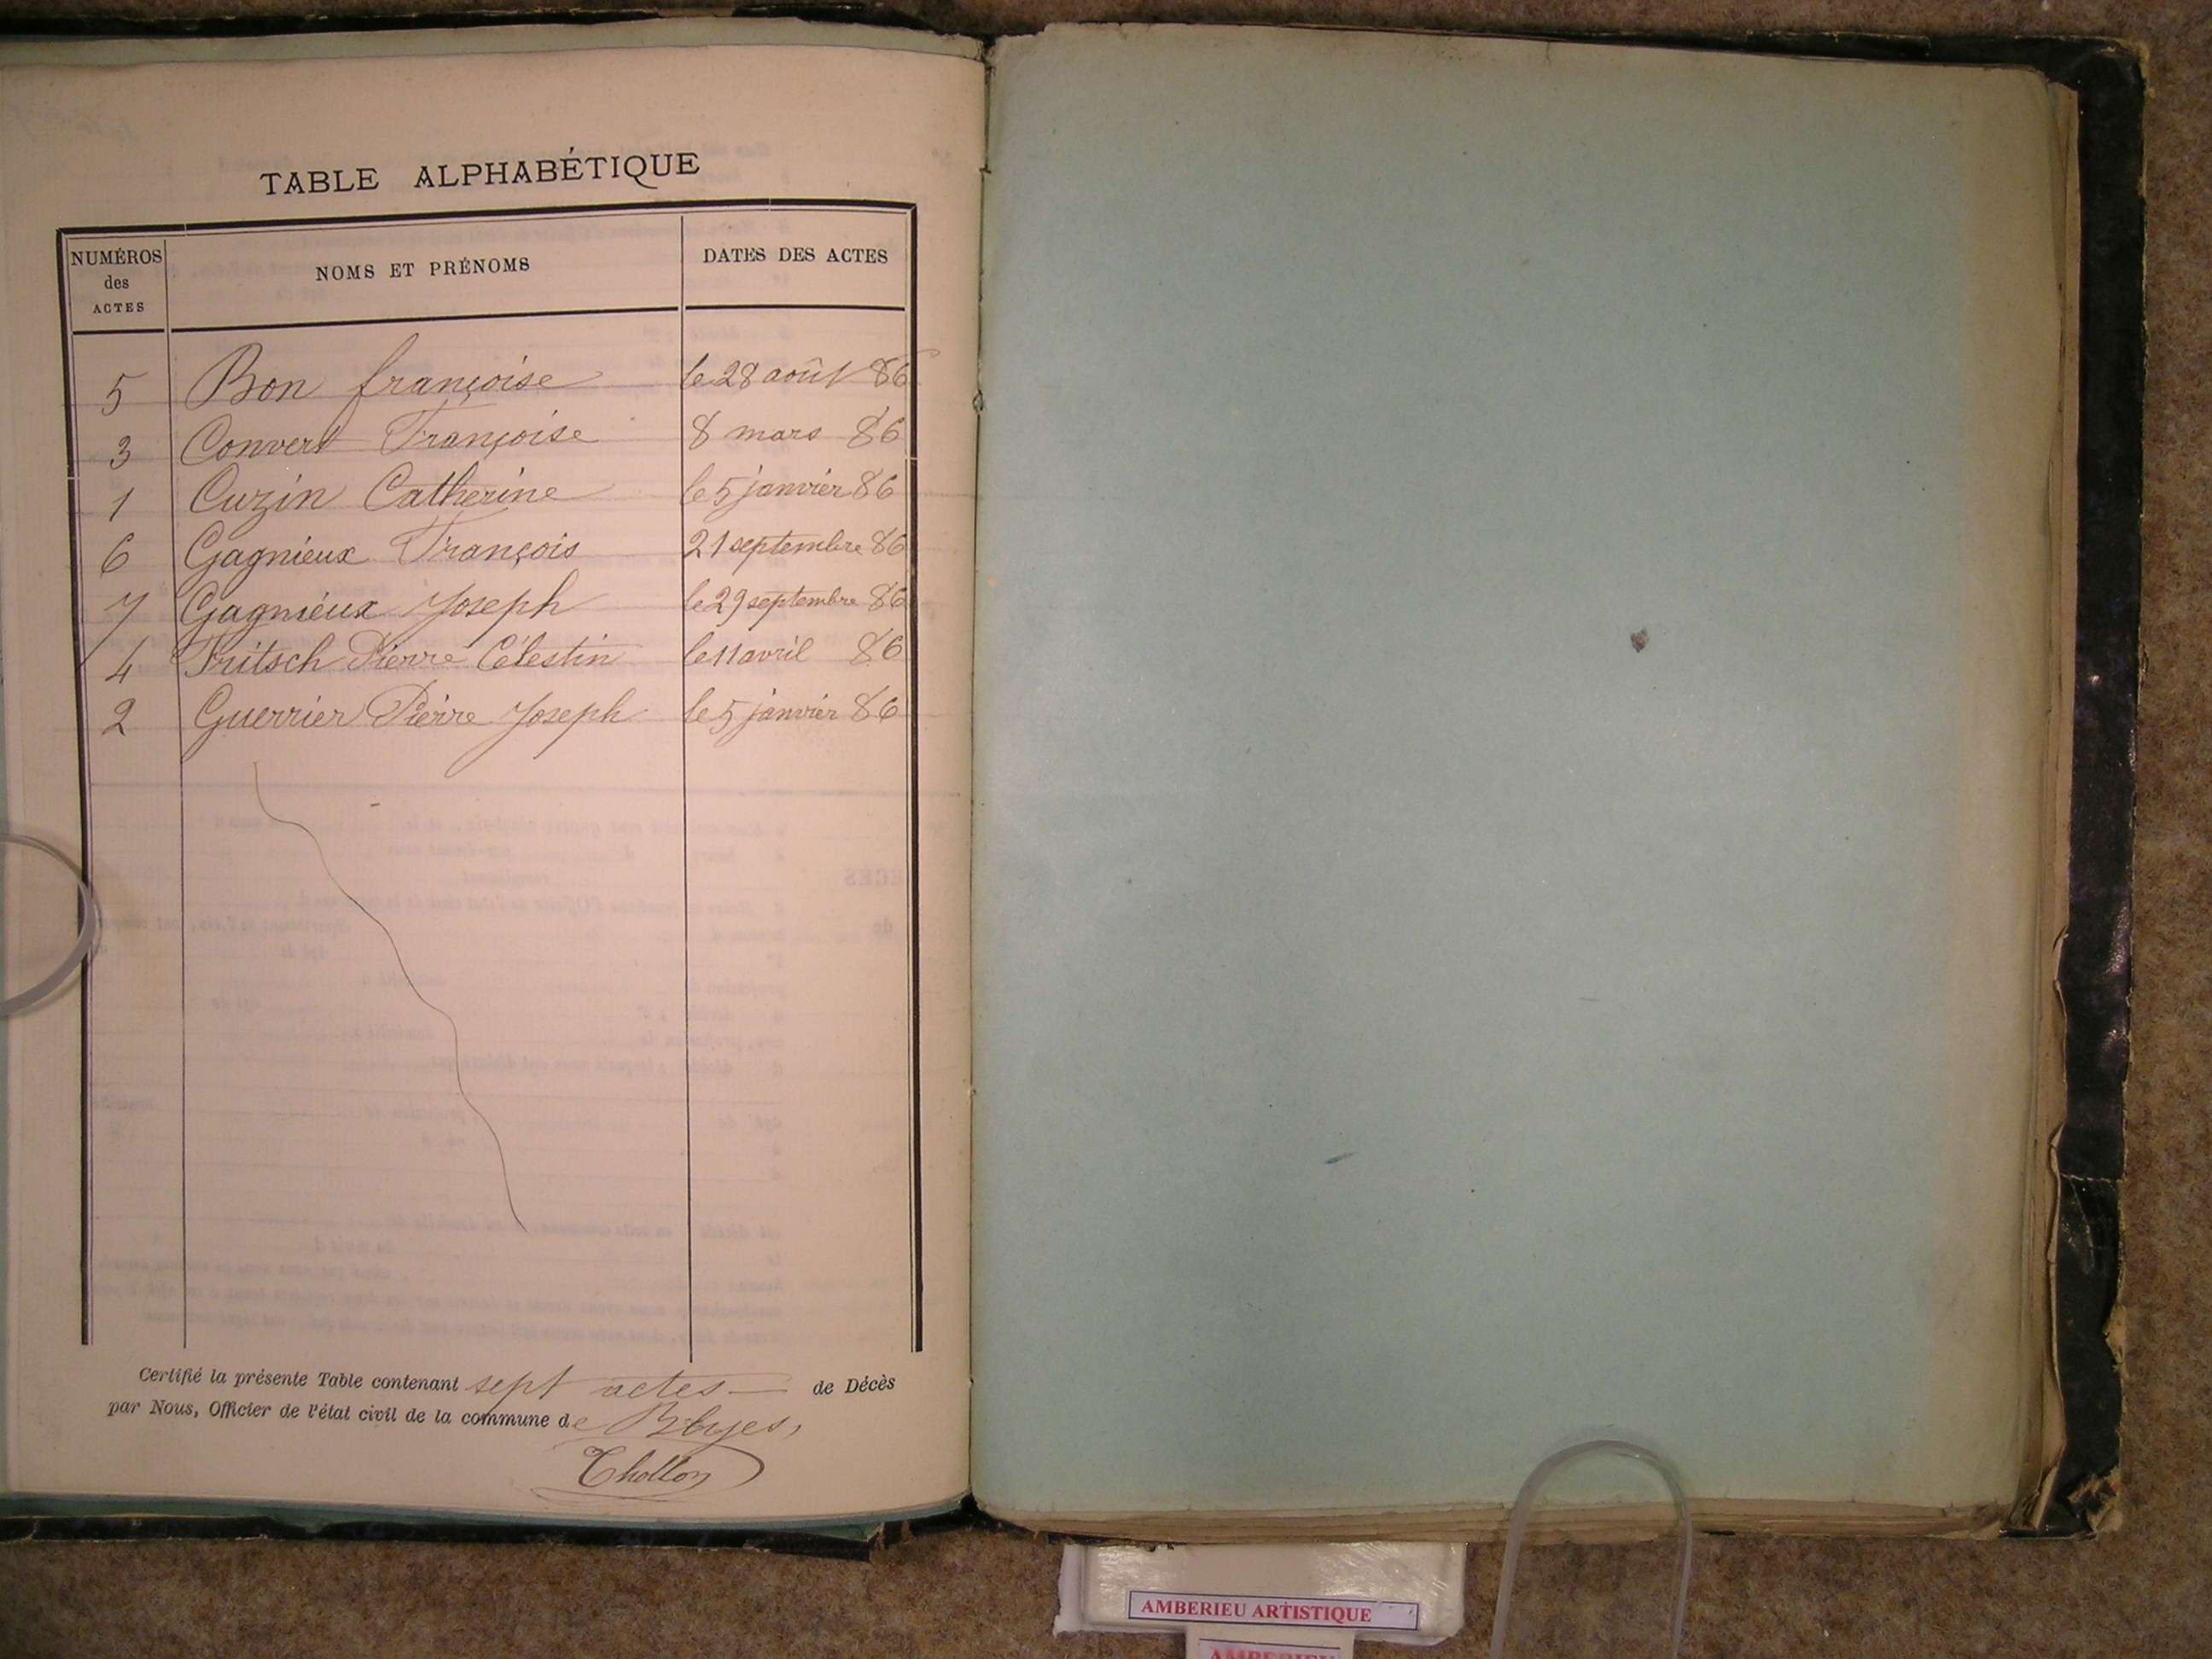 TABLE ALPHABÉTIQUE
NUMÉROS des ACTES NOMS ET PRÉNOMS DATES DES ACTES
5 Bon françoise le 28 août 86
3 Convert Françoise 8 mars 86
1 Cuzin Catherine le 5 janvier 86
6 Gagnieux François 21 septembre 86
7 Gagnieux Joseph le 29 septembre 86
4 Fritsch Pierre Célestin le 11 avril 86
2 Guerrier Pierre Joseph le 5 janvier 86
Certifié la présente Table contenant sept actes de Décès
par Nous, Officier de l'état civil de la commune de Blyes,
Thollon
AMBERIEU ARTISTIQUE
AMBERIEU